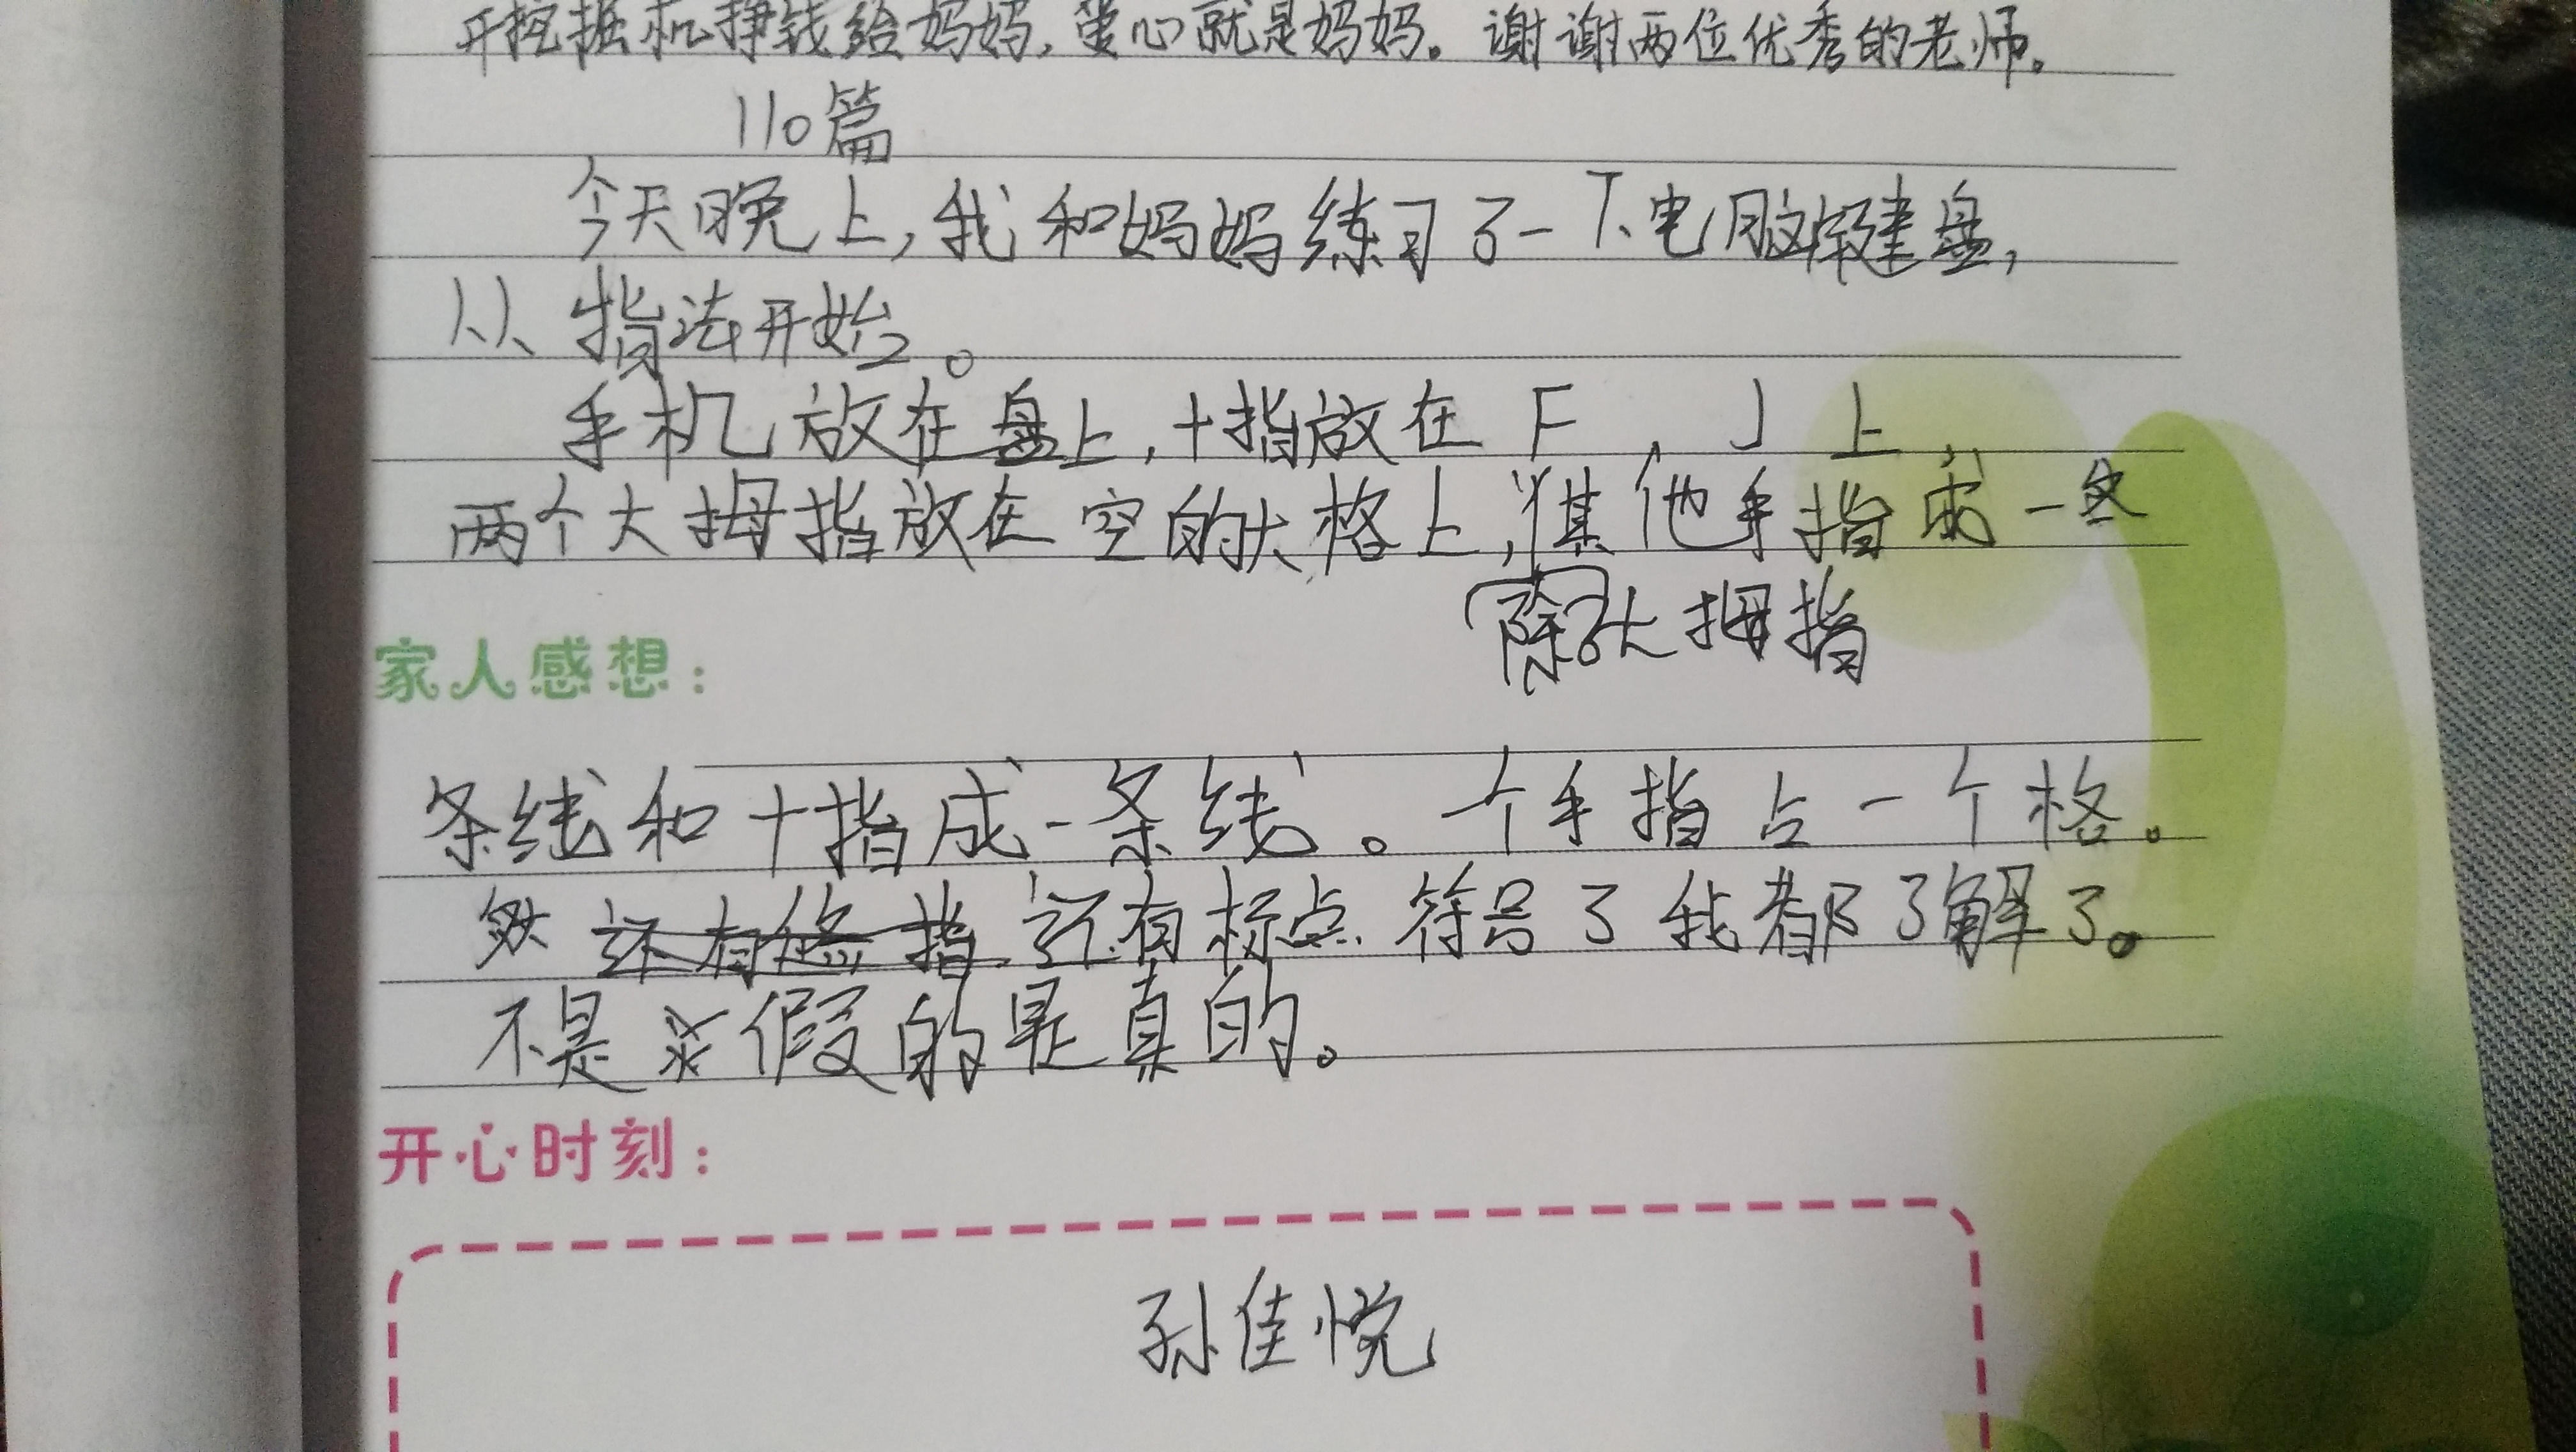 开挖掘机挣钱给妈妈,爱心就是妈妈。谢谢两位优秀的老师。
110篇
今天晚上,我和妈妈练习了一下电脑键盘,
从指法开始。
手机放在盘上,十指放在F,J上,
两个大拇指放在空的大格上,其他手指成一
除了大拇指
家人感想:
条线和十指成一条线。一个手指占一个格。
还有标点符号了我都了解了。
不是假的是真的。
开心时刻:
孙佳悦